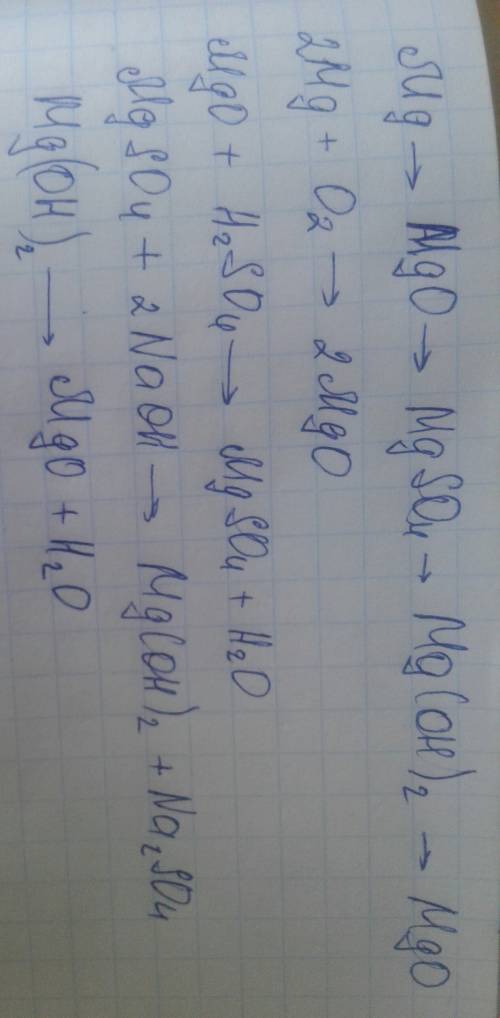 Mg → MgO → MgSO₄ → Mg(OH)₂ → MgO
2Mg + O₂ → 2MgO
MgO + H₂SO₄ → MgSO₄ + H₂O
MgSO₄ + 2NaOH → Mg(OH)₂ + Na₂SO₄
Mg(OH)₂ → MgO + H₂O